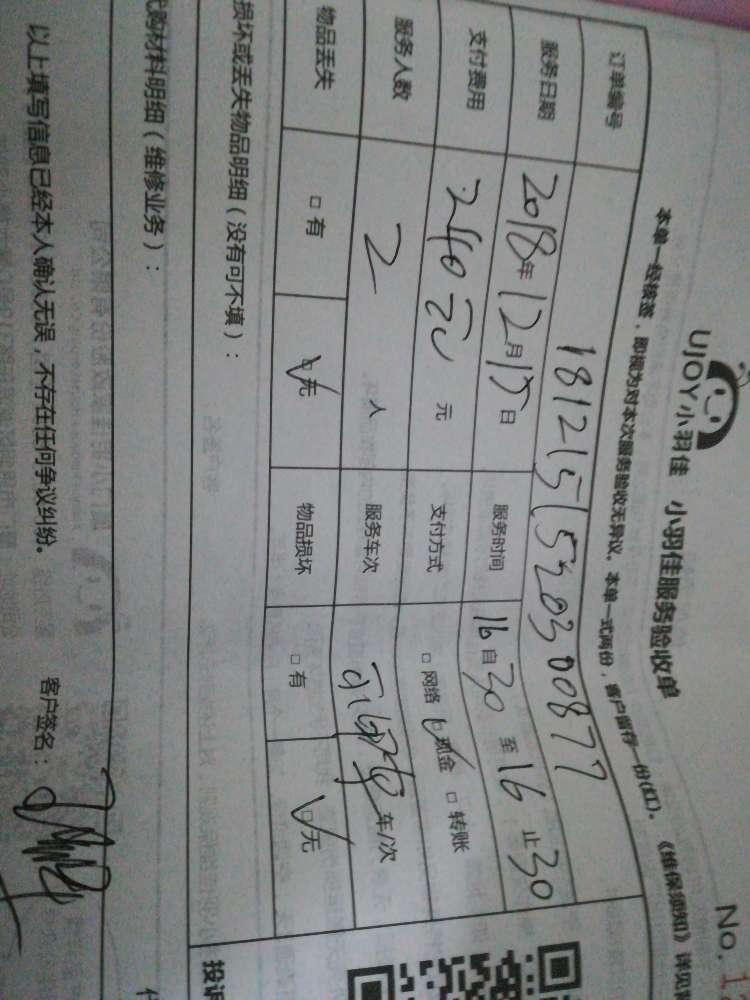 No. 1
UJOY小羽佳 小羽佳服务验收单
本单一经核签，即视为对本次服务验收无异议。本单一式两份，客户留存一份(红)。《维保须知》详见
订单编号 181215152030 0877
服务日期 2018年12月15日 服务时间 16自30至16止30
支付费用 240元 元 支付方式 □网络 ☑现金 □转账
服务人数 2 人 服务车次 车/次
物品丢失 □有 ☑无 物品损坏 □有 ☑无
损坏或丢失物品明细（没有可不填）：
代购材料明细（维修业务）：
以上填写信息已经本人确认无误，不存在任何争议纠纷。 客户签名：
投诉